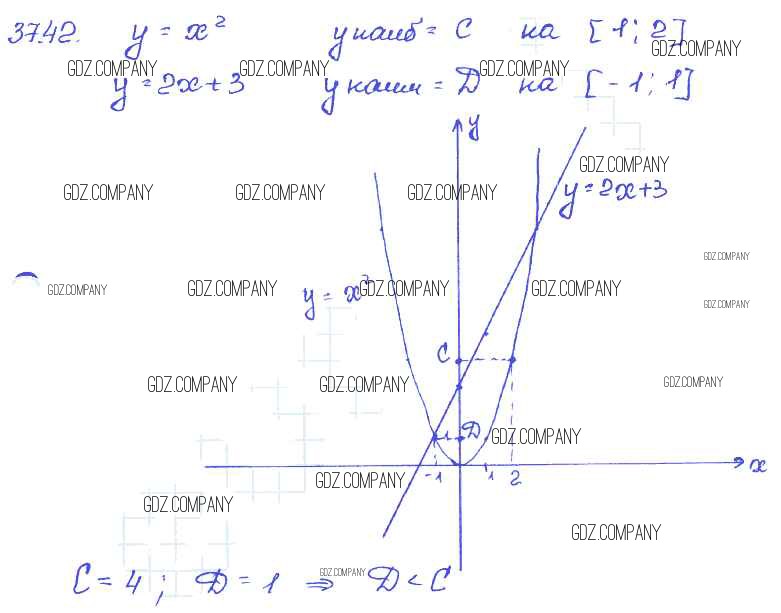 37.42. y = x² y наиб = C на [1; 2]
GDZ.COMPANY
GDZ.COMPANY GDZ.COMPANY GDZ.COMPANY
y = 2x+3 y наим = D на [-1; 1]
y
GDZ.COMPANY
GDZ.COMPANY GDZ.COMPANY GDZ.COMPANY y = 2x+3
GDZ.COMPANY
GDZ.COMPANY GDZ.COMPANY y = x² GDZ.COMPANY GDZ.COMPANY
GDZ.COMPANY
C
GDZ.COMPANY GDZ.COMPANY GDZ.COMPANY
1 D GDZ.COMPANY
x
-1 1 2
GDZ.COMPANY
GDZ.COMPANY
GDZ.COMPANY
GDZ.COMPANY
C = 4; D = 1 ⇒ D < C